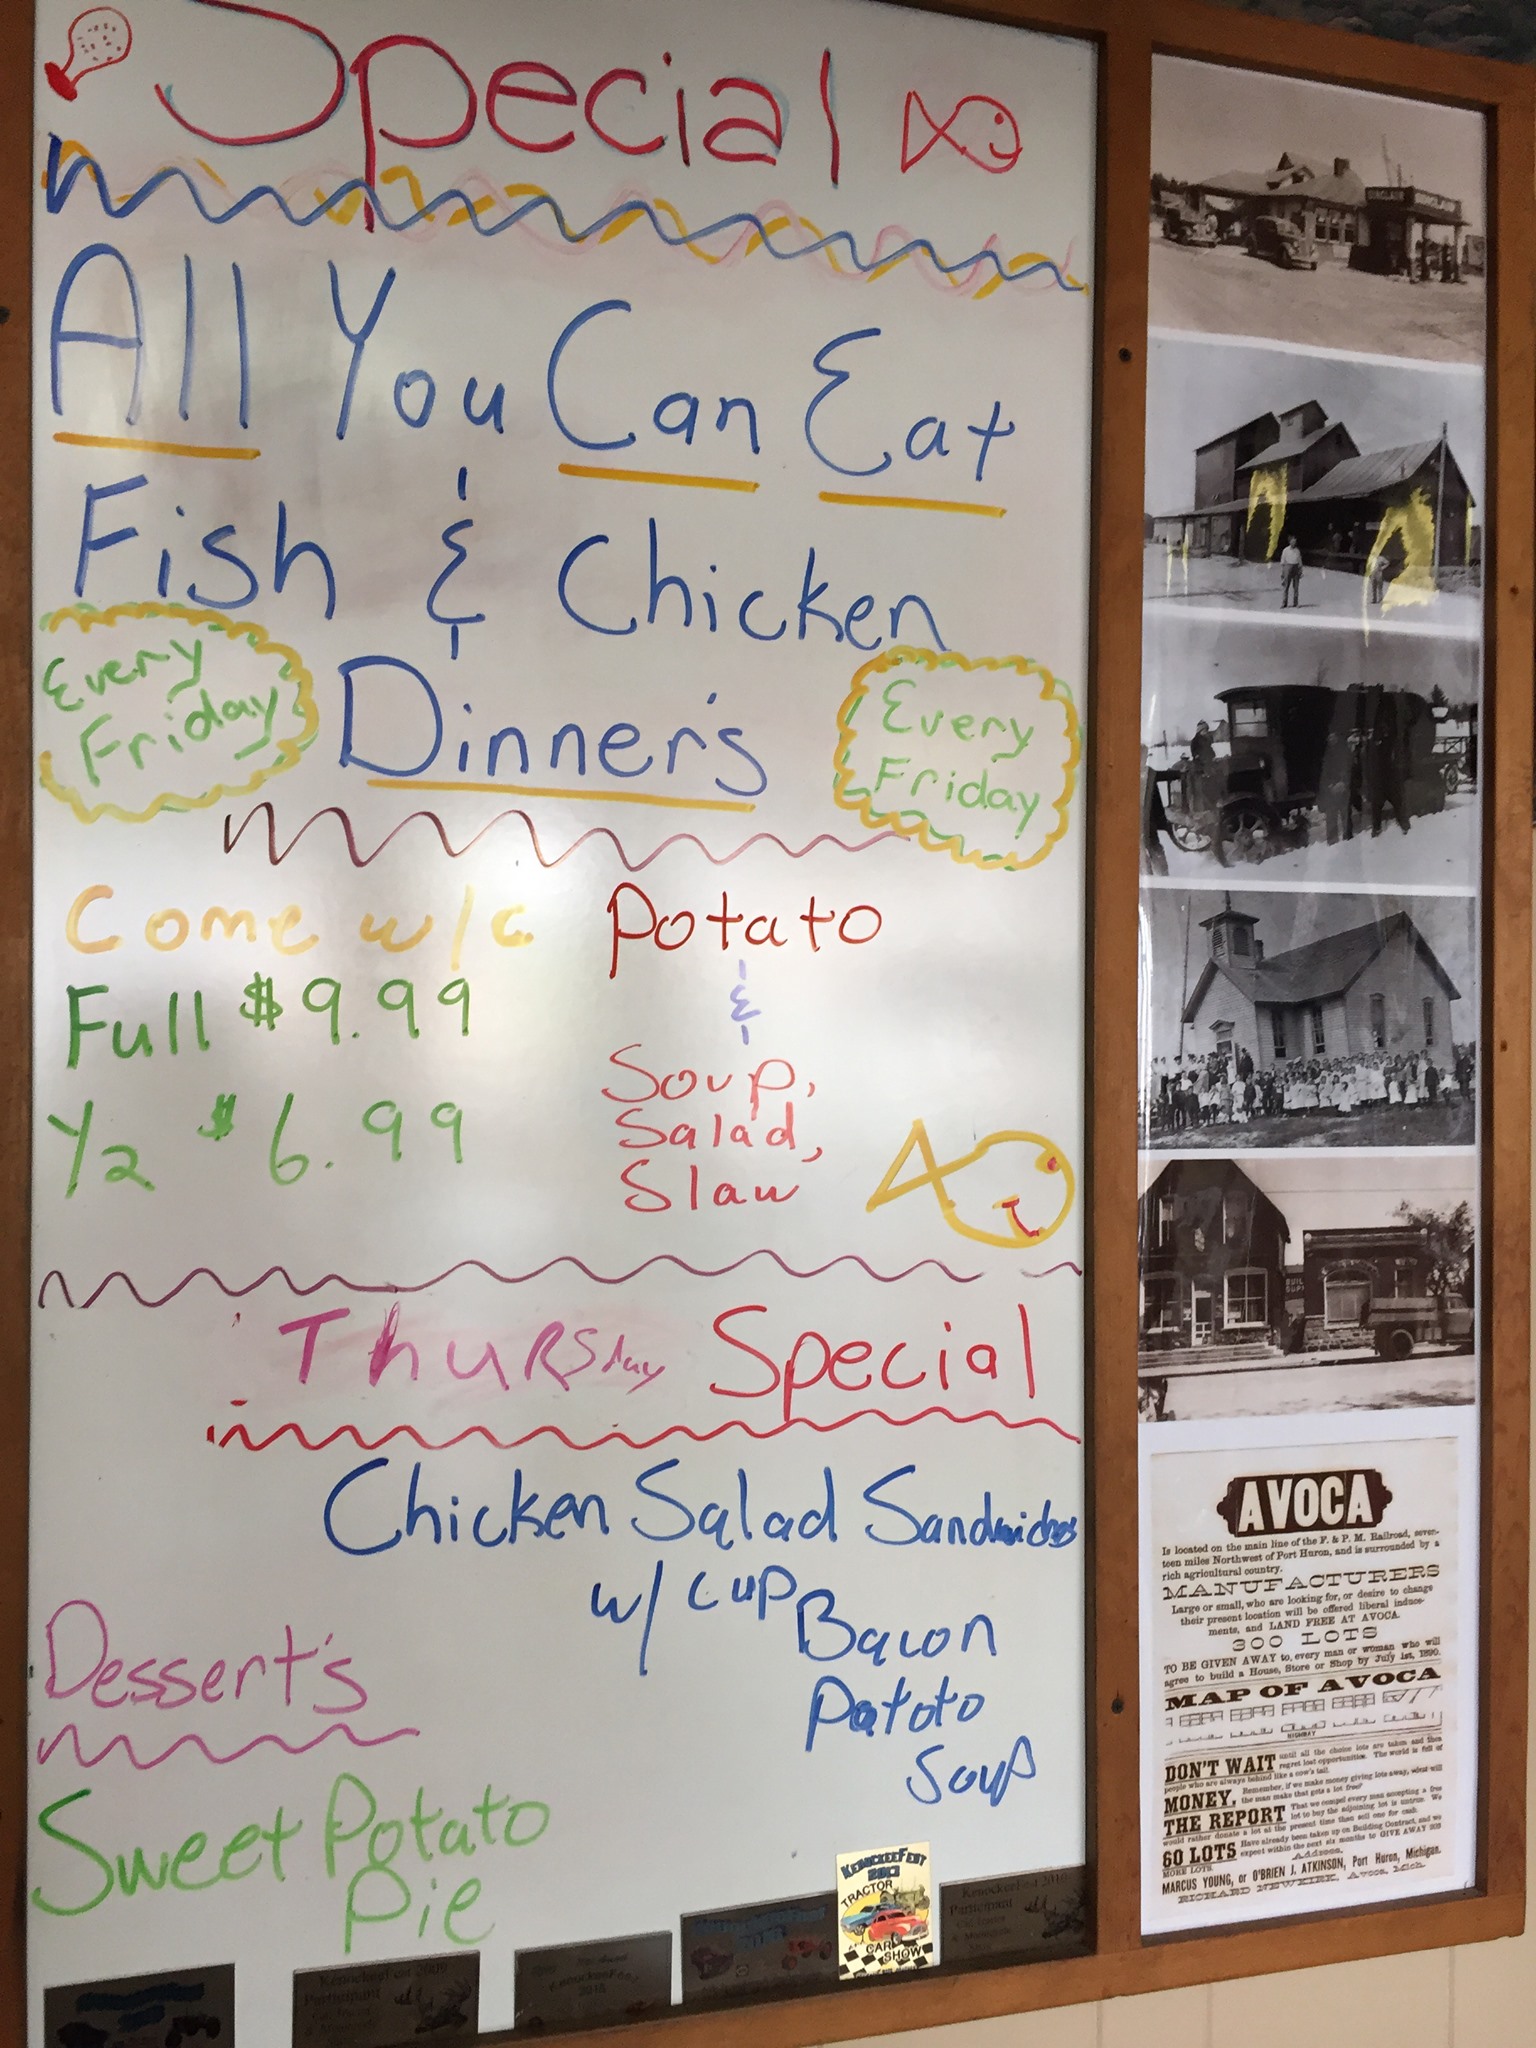 Special
All You Can Eat
Fish & Chicken
Every
Friday
Dinner's
Every
Friday
Come w/c Potato
&
Full $9.99
1/2 $6.99
Soup,
Salad,
Slaw
Thursday Special
Chicken Salad Sandwiches
w/ cup Bacon
Patoto
Soup
Dessert's
Sweet Potato
Pie
AVOCA
Is located on the main line of the F. & P. M. Railroad, seven-
teen miles Northwest of Port Huron, and is surrounded by a
rich agricultural country.
MANUFACTURERS
Large or small, who are looking for, or desire to change
their present location will be offered liberal induce-
ments, and LAND FREE AT AVOCA.
300 LOTS
TO BE GIVEN AWAY to every man or woman who will
agree to build a House, Store or Shop by July 1st, 1890.
MAP OF AVOCA
HIGHWAY
DON'T WAIT until all the choice lots are taken and then
regret lost opportunities. The world is full of
people who are always behind like a cow's tail.
MONEY, Remember, if we make money giving lots away, what will
the man make that gets a lot free?
THE REPORT That we compel every man accepting a free
lot to buy the adjoining lot is untrue. We
would rather donate a lot at the present time than sell one for cash.
60 LOTS Have already been taken up on Building Contract, and we
expect within the next six months to GIVE AWAY
MORE LOTS.
Address,
MARCUS YOUNG, or O'BRIEN J. ATKINSON, Port Huron, Michigan.
RICHARD NEWKIRK, Avoca, Mich.
KENOCKEEFEST
TRACTOR
CAR
SHOW
KenockeeFest 2009
Participant
KenockeeFest
KenockeeFest 2010
Participant